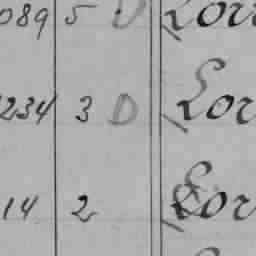 089 5 D Lov
234 3 D Lov
14 2 Lov